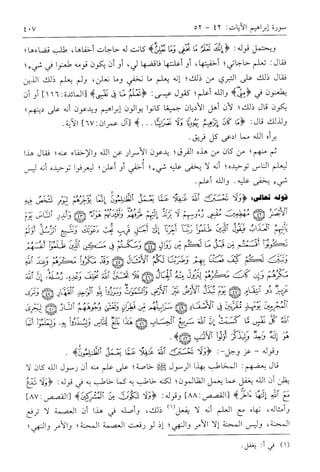 سورة إبراهيم الآيات: ٤٢ - ٥٢ ٤٠٧
ويحتمل قوله: ﴿إِنَّكَ تَعْلَمُ مَا نُخْفِي وَمَا نُعْلِنُ﴾ كانت له حاجات أخفاها، طلب قضاءها؛
فقال: تعلم حاجاتي؛ أخفيتها، أو أعلنتها فاقضها لي، أو أن يكون قومه طعنوا في شيء؛
فقال ذلك على التبري من ذلك؛ إنه يعلم ما نخفي وما نعلن، ولم يعلم ذلك الذين
يطعنون في والله أعلم؛ كقول عيسى: ﴿تَعْلَمُ مَا فِي نَفْسِي﴾ [المائدة: ١١٦] أو أن
يكون قال ذلك؛ لأن أهل الأديان جميعًا كانوا يوالون إبراهيم ويدعون أنه على دينهم؛
ولذلك قال: ﴿مَا كَانَ إِبْرَاهِيمُ يَهُودِيًّا وَلَا نَصْرَانِيًّا...﴾ [آل عمران: ٦٧] الآية.
برأه الله مما ادعى كل فريق.
ثم منهم؛ من كان من هذه الفرق؛ يدعون الأسرار عن الله والإخفاء عنه؛ فقال هذا
ليعلم الناس توحيده؛ أنه لا يخفى عليه شيء؛ أخفي أو أعلن؛ ليعرفوا توحيده أنه ليس
شيء يخفى عليه. والله أعلم.
قوله تعالى: ﴿وَلَا تَحْسَبَنَّ اللَّهَ غَافِلًا عَمَّا يَعْمَلُ الظَّالِمُونَ إِنَّمَا يُؤَخِّرُهُمْ لِيَوْمٍ تَشْخَصُ فِيهِ
الْأَبْصَارُ ۝٤٢ مُهْطِعِينَ مُقْنِعِي رُءُوسِهِمْ لَا يَرْتَدُّ إِلَيْهِمْ طَرْفُهُمْ وَأَفْئِدَتُهُمْ هَوَاءٌ ۝٤٣ وَأَنذِرِ النَّاسَ يَوْمَ
يَأْتِيهِمُ الْعَذَابُ فَيَقُولُ الَّذِينَ ظَلَمُوا رَبَّنَا أَخِّرْنَا إِلَى أَجَلٍ قَرِيبٍ نُّجِبْ دَعْوَتَكَ وَنَتَّبِعِ الرُّسُلَ أَوَلَمْ
تَكُونُوا أَقْسَمْتُم مِّن قَبْلُ مَا لَكُم مِّن زَوَالٍ ۝٤٤ وَسَكَنتُمْ فِي مَسَاكِنِ الَّذِينَ ظَلَمُوا أَنفُسَهُمْ
وَتَبَيَّنَ لَكُمْ كَيْفَ فَعَلْنَا بِهِمْ وَضَرَبْنَا لَكُمُ الْأَمْثَالَ ۝٤٥ وَقَدْ مَكَرُوا مَكْرَهُمْ وَعِندَ اللَّهِ
مَكْرُهُمْ وَإِن كَانَ مَكْرُهُمْ لِتَزُولَ مِنْهُ الْجِبَالُ ۝٤٦ فَلَا تَحْسَبَنَّ اللَّهَ مُخْلِفَ وَعْدِهِ رُسُلَهُ إِنَّ اللَّهَ
عَزِيزٌ ذُو انتِقَامٍ ۝٤٧ يَوْمَ تُبَدَّلُ الْأَرْضُ غَيْرَ الْأَرْضِ وَالسَّمَاوَاتُ وَبَرَزُوا لِلَّهِ الْوَاحِدِ الْقَهَّارِ ۝٤٨ وَتَرَى
الْمُجْرِمِينَ يَوْمَئِذٍ مُّقَرَّنِينَ فِي الْأَصْفَادِ ۝٤٩ سَرَابِيلُهُم مِّن قَطِرَانٍ وَتَغْشَى وُجُوهَهُمُ النَّارُ ۝٥٠ لِيَجْزِيَ
اللَّهُ كُلَّ نَفْسٍ مَّا كَسَبَتْ إِنَّ اللَّهَ سَرِيعُ الْحِسَابِ ۝٥١ هَذَا بَلَاغٌ لِّلنَّاسِ وَلِيُنذَرُوا بِهِ وَلِيَعْلَمُوا أَنَّمَا
هُوَ إِلَهٌ وَاحِدٌ وَلِيَذَّكَّرَ أُولُو الْأَلْبَابِ ۝٥٢﴾.
وقوله - عز وجل -: ﴿وَلَا تَحْسَبَنَّ اللَّهَ غَافِلًا عَمَّا يَعْمَلُ الظَّالِمُونَ﴾.
قال بعضهم: المخاطب بهذا الرسول ﷺ خاصة؛ على علم منه أن رسول الله كان لا
يظن أن الله يغفل عما يعمل الظالمون؛ لكنه خاطب به كما خاطب به في قوله: ﴿وَلَا تَدْعُ
مَعَ اللَّهِ إِلَهًا آخَرَ﴾ [القصص: ٨٨] وقوله: ﴿وَلَا تَكُونَنَّ مِنَ الْمُشْرِكِينَ﴾ [القصص: ٨٧]
وأمثاله، نهاه مع العلم أنه لا يفعل(١) ذلك، وأصله في هذا أن العصمة لا ترفع
المحنة، وليس المحنة إلا الأمر والنهي؛ إذ لو رفعت العصمة المحنة؛ والأمر والنهي؛
(١) في أ: يغفل.